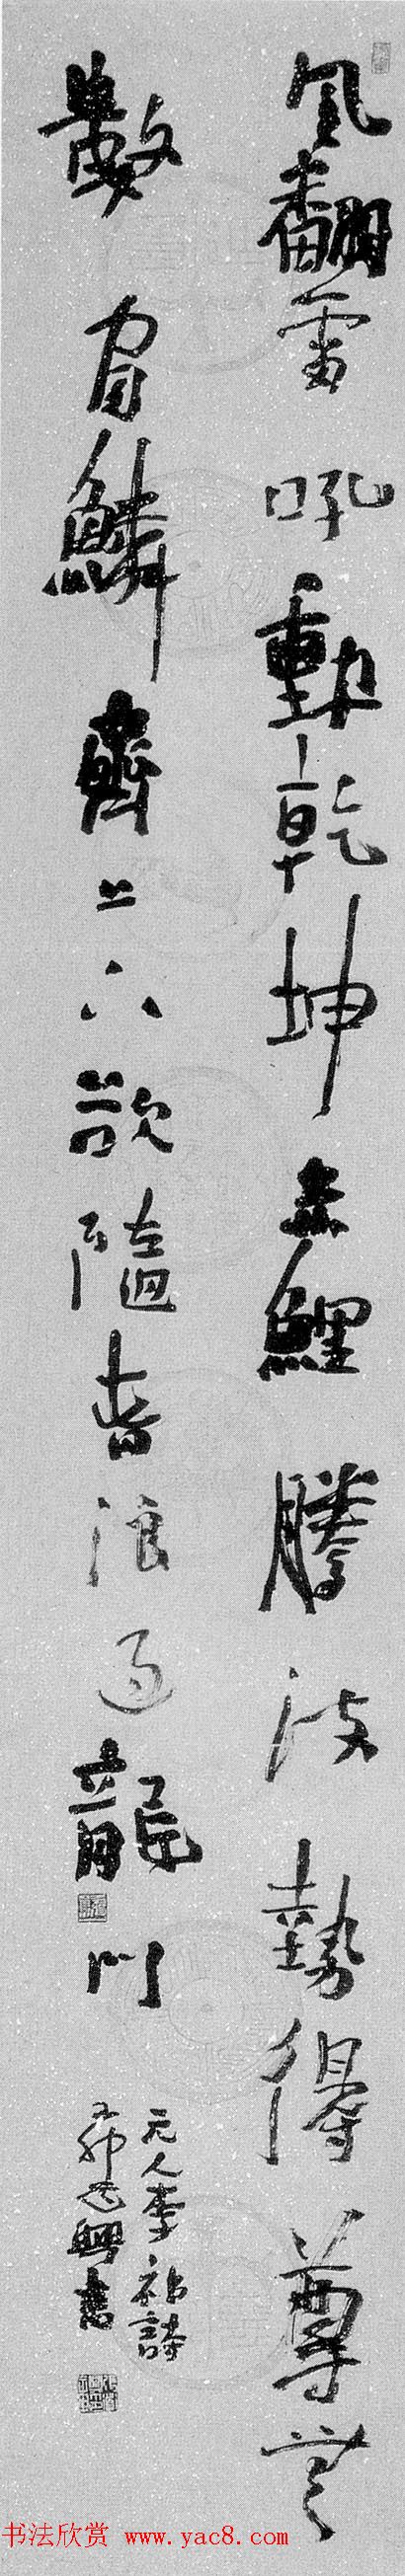 風翻雷吼動乾坤赤鯉騰波勢得尊无
數有鱗齊上下欲隨春浪過龍門
元人李祁詩
興書
书法欣赏 www.yac8.com